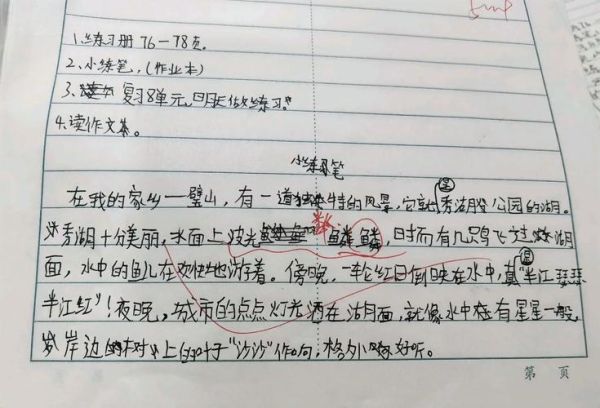 1.练习册76-78页.
2.小练笔.(作业本)
3.复习8单元,明天做练习。
4.读作文本。
小练笔
在我的家乡一璧山,有一道独特的风景,它就是秀湖公园的湖。
秀湖十分美丽,水面上波光鳞鳞,时而有几只鸟飞过湖
面,水中的鱼儿在欢快地游着。傍晚,一轮红日倒映在水中,真是"半江瑟瑟
半江红"!夜晚,城市的点点灯光洒在湖面,就像水中有星星一般,
岸边的树上的叶子"沙沙"作响,格外好听。
第 页